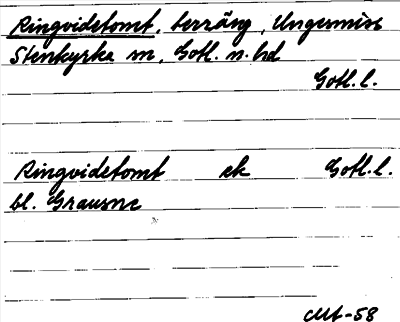 Ringvidetomt, terräng, Ungesmise
Stenkyrka sn, Gotl. n. hd
Gotl. l.
Ringvidetomt ek Gotl. l.
bl. Grausne
-58